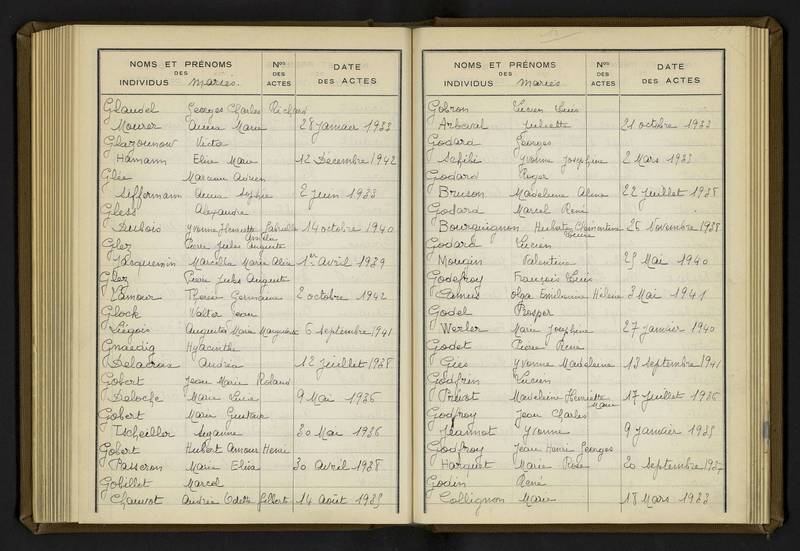 NOMS ET PRÉNOMS
DES
INDIVIDUS Mariés.
Nos
DES
ACTES
DATE
DES ACTES
Glaudel Georges Charles Richard
Maurer Anna Marie 28 Janvier 1933
Glazounow Victor
Hamann Elise Marie 12 Décembre 1942
Glée Adrien
Siffermann Anna Sophie 2 Juin 1933
Gless Alexandre
Dubois Yvonne Henriette Gabrielle 14 octobre 1940
Amélie
Glez Pierre Jules Auguste
Jacquemin Marcelle Marie Alice 1er Avril 1939
Glez Pierre Jules Auguste
Lamour Germaine 2 octobre 1942
Glock Walter Jean
Liégois Augusta Marie Marguerite 6 septembre 1941
Gnaedig Hyacinthe
Delacroix Andréa 12 Juillet 1938
Gobert Jean Marie Roland
Deloche Marie Luise 9 Mai 1936
Gobert Marie Gustave
Tscheiller Suzanne 30 Mai 1936
Gobert Hubert Amour Henri
Passeron Marie Elisa 30 Avril 1938
Gobillet Marcel
Chauvot Andrée Odette Gilberte 14 Août 1935
NOMS ET PRÉNOMS
DES
INDIVIDUS Mariés
Nos
DES
ACTES
DATE
DES ACTES
Gobron Lucien Louis
Arbeval Juliette 21 octobre 1933
Godard Georges
Schibi Yvonne Joséphine 2 Mars 1933
Godard Roger
Bruson Madeleine Aline 22 Juillet 1938
Godard Marcel René
Bourguignon Huberte Clémentine 26 Novembre 1938
Louise
Godard Lucien
Mougin Valentine 25 Mai 1940
Godefroy François Louis
Camus Olga Emilienne Hélène 3 Mai 1941
Godel Prosper
Werler Marie Joséphine 27 Janvier 1940
Godet Pierre René
Giés Yvonne Madeleine 13 Septembre 1941
Godfrin Lucien
Prévot Madeleine Henriette 17 Juillet 1936
Marie
Godfroy Jean Charles
Jeannot Yvonne 9 Janvier 1935
Godfroy Jean Henri Georges
Harquet Marie Rose 20 Septembre 1937
Godin René
Collignon Marie 18 Mars 1933